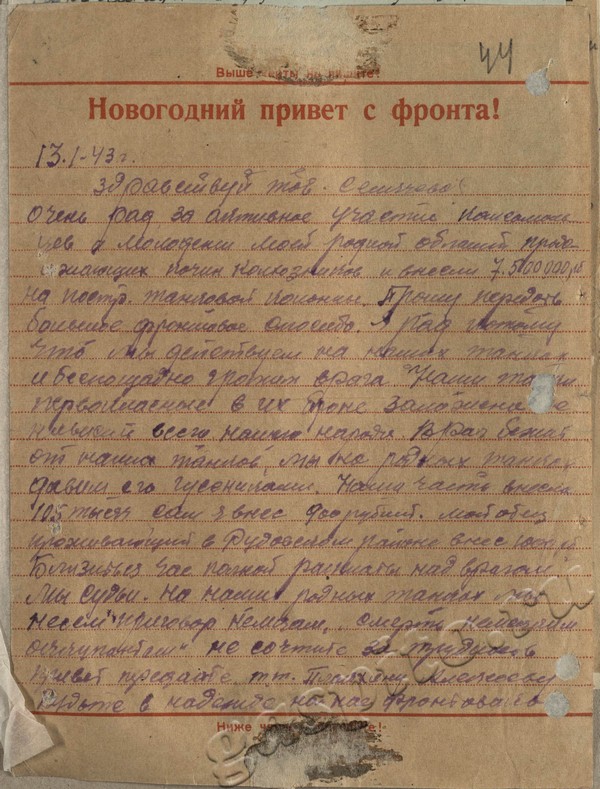 44
Новогодний привет с фронта!
13.1-43 г.
Здравствуй тов.
очень рад за активное участие комсомоль
цев и молодежи моей родной области
почин колхозников и внесли 7.500000 руб
на постр. танковой колонны. Прошу передать
большое фронтовое спасибо. Я рад потому
что мы действуем на наших танках
и беспощадно громим врага. Наши танки
первоклассные в их броне заложена
всего нашего народа. Враг бежит
от наших танков, мы на родных танках
давим его гусеницами. Наша часть внесла
105 тысяч сам я внес рублей. мой отец
проживающий в районе внес
Близиться час полной расплаты над врагом
мы судьи. на наших родных танках мы
несем приговор немцам. смерть немецким
оккупантам" не сочтите за трудность
привет передайте т.т.
Будьте в надежде на нас фронтовиков
Ниже